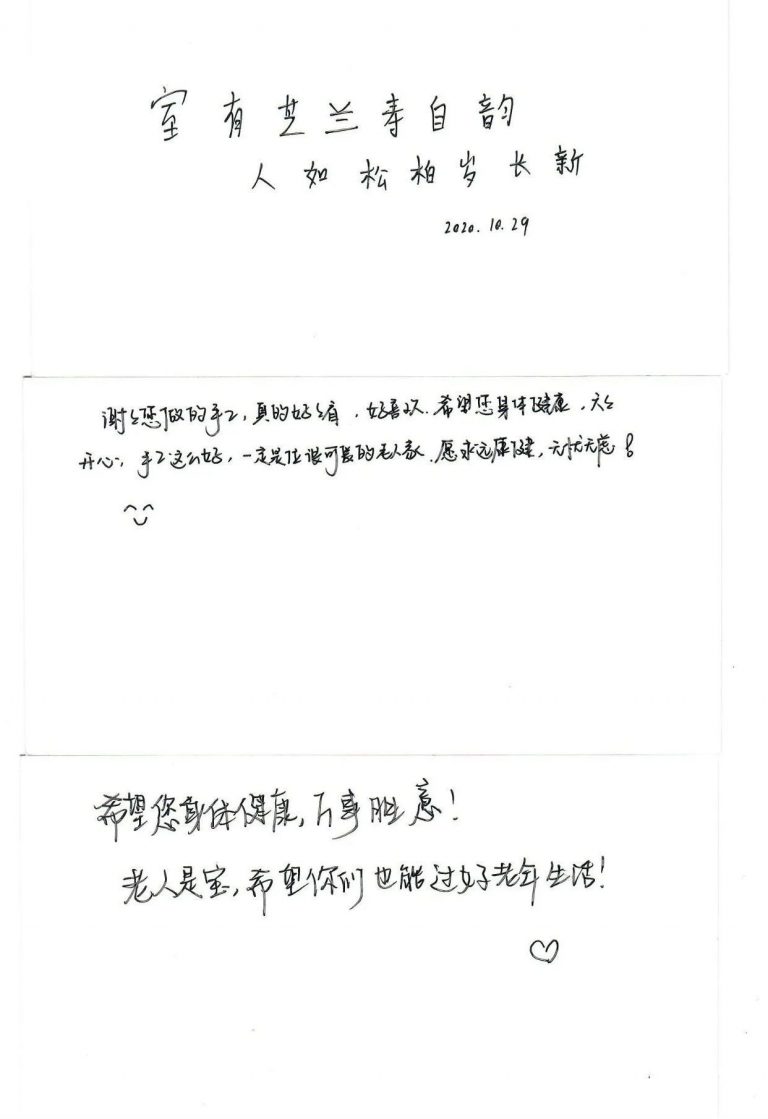 室有芝兰寿自韵
人如松柏岁长新
2020.10.29
谢谢您做的手工,真的好好看,好喜欢.希望您身体健康,天天
开心,手工这么好,一定是位很可爱的老人家.愿永远康健,无忧无虑!
希望您身体健康,万事胜意!
老人是宝,希望你们也能过好老年生活!